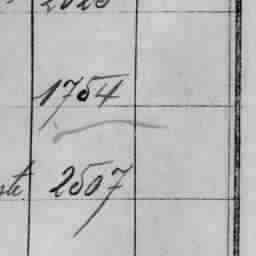 1754
2507